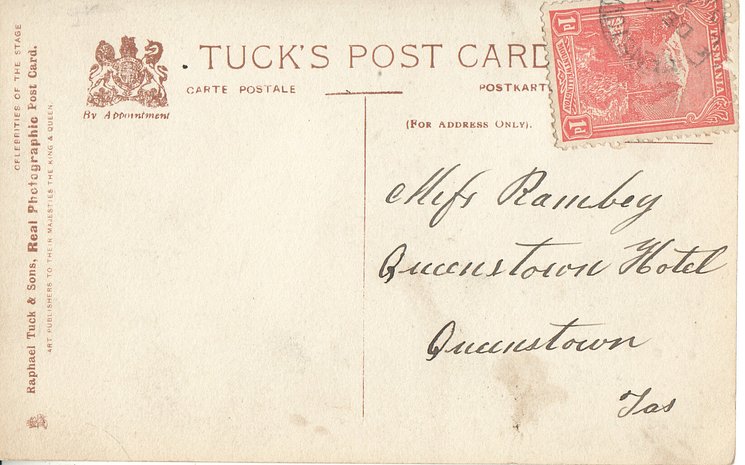 CELEBRITIES OF THE STAGE
Raphael Tuck & Sons, Real Photographic Post Card.
ART PUBLISHERS TO THEIR MAJESTIES THE KING & QUEEN.
By Appointment
TUCK'S POST CARD
CARTE POSTALE
POSTKARTE
(FOR ADDRESS ONLY).
1d
TASMANIA
1d
Miss Rambey
Queenstown Hotel
Queenstown
Tas